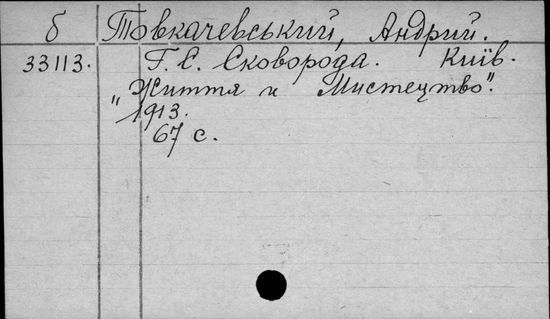 б Товкачевський, Андрий.
33113. Г. С. Сковорода. Київ.
"Життя и Мистецтво".
1913.
67 с.